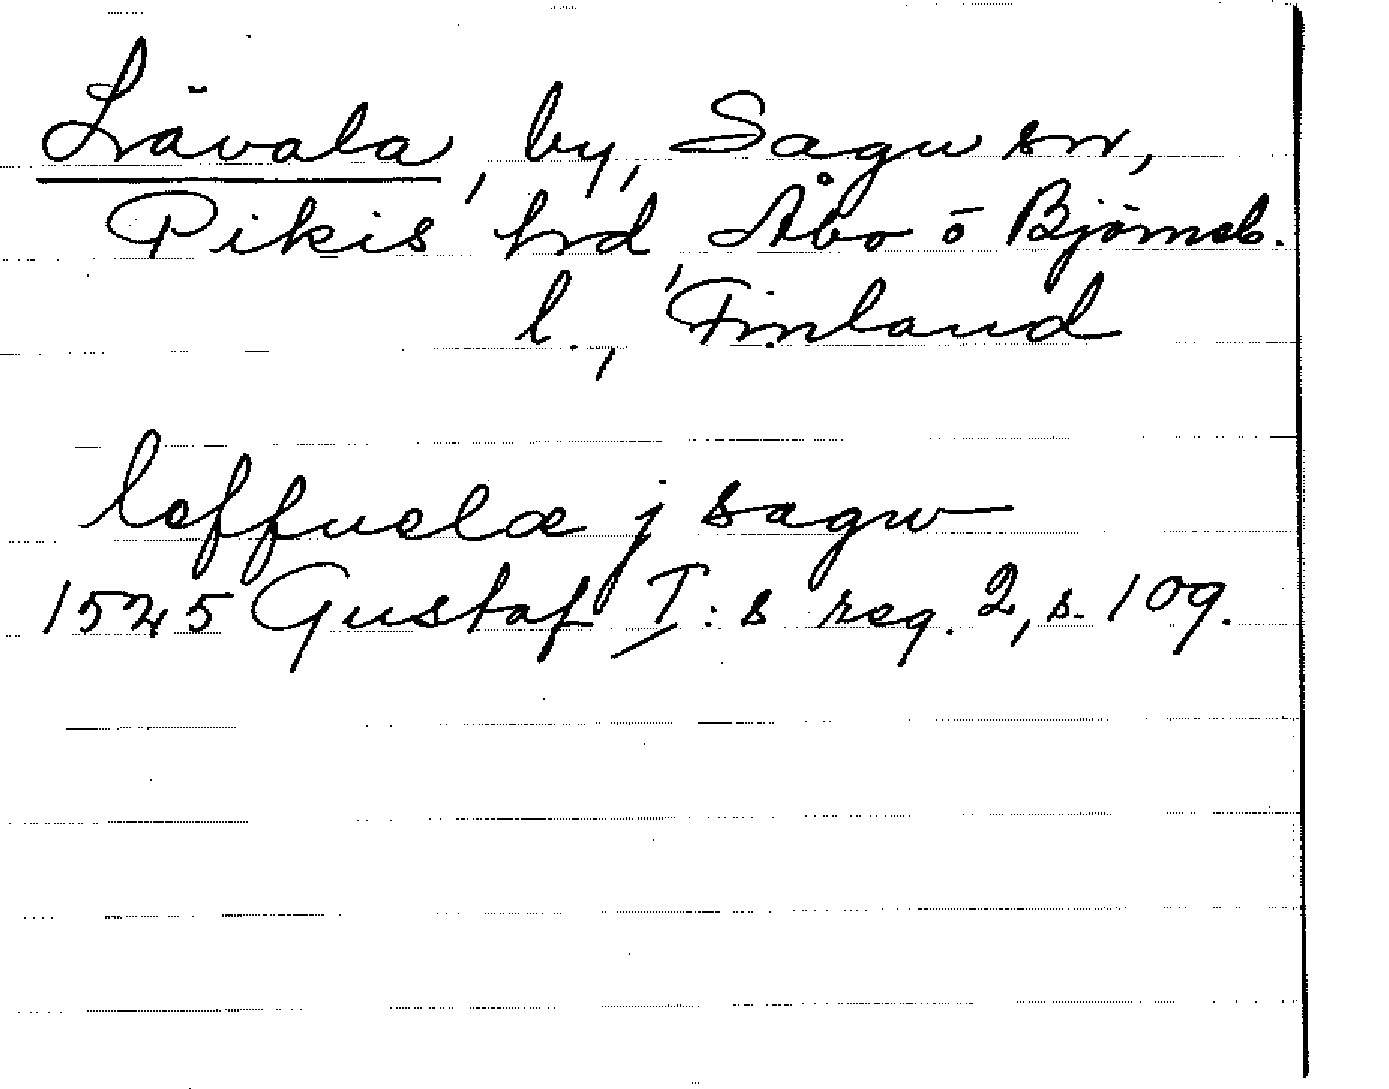 Lävälä, by, Sagu sn,
Pikis hrd, Åbo o Björneb.
l., Finland
leffuelæ j sagw
1545 Gustaf I:s reg. 2, s. 109.